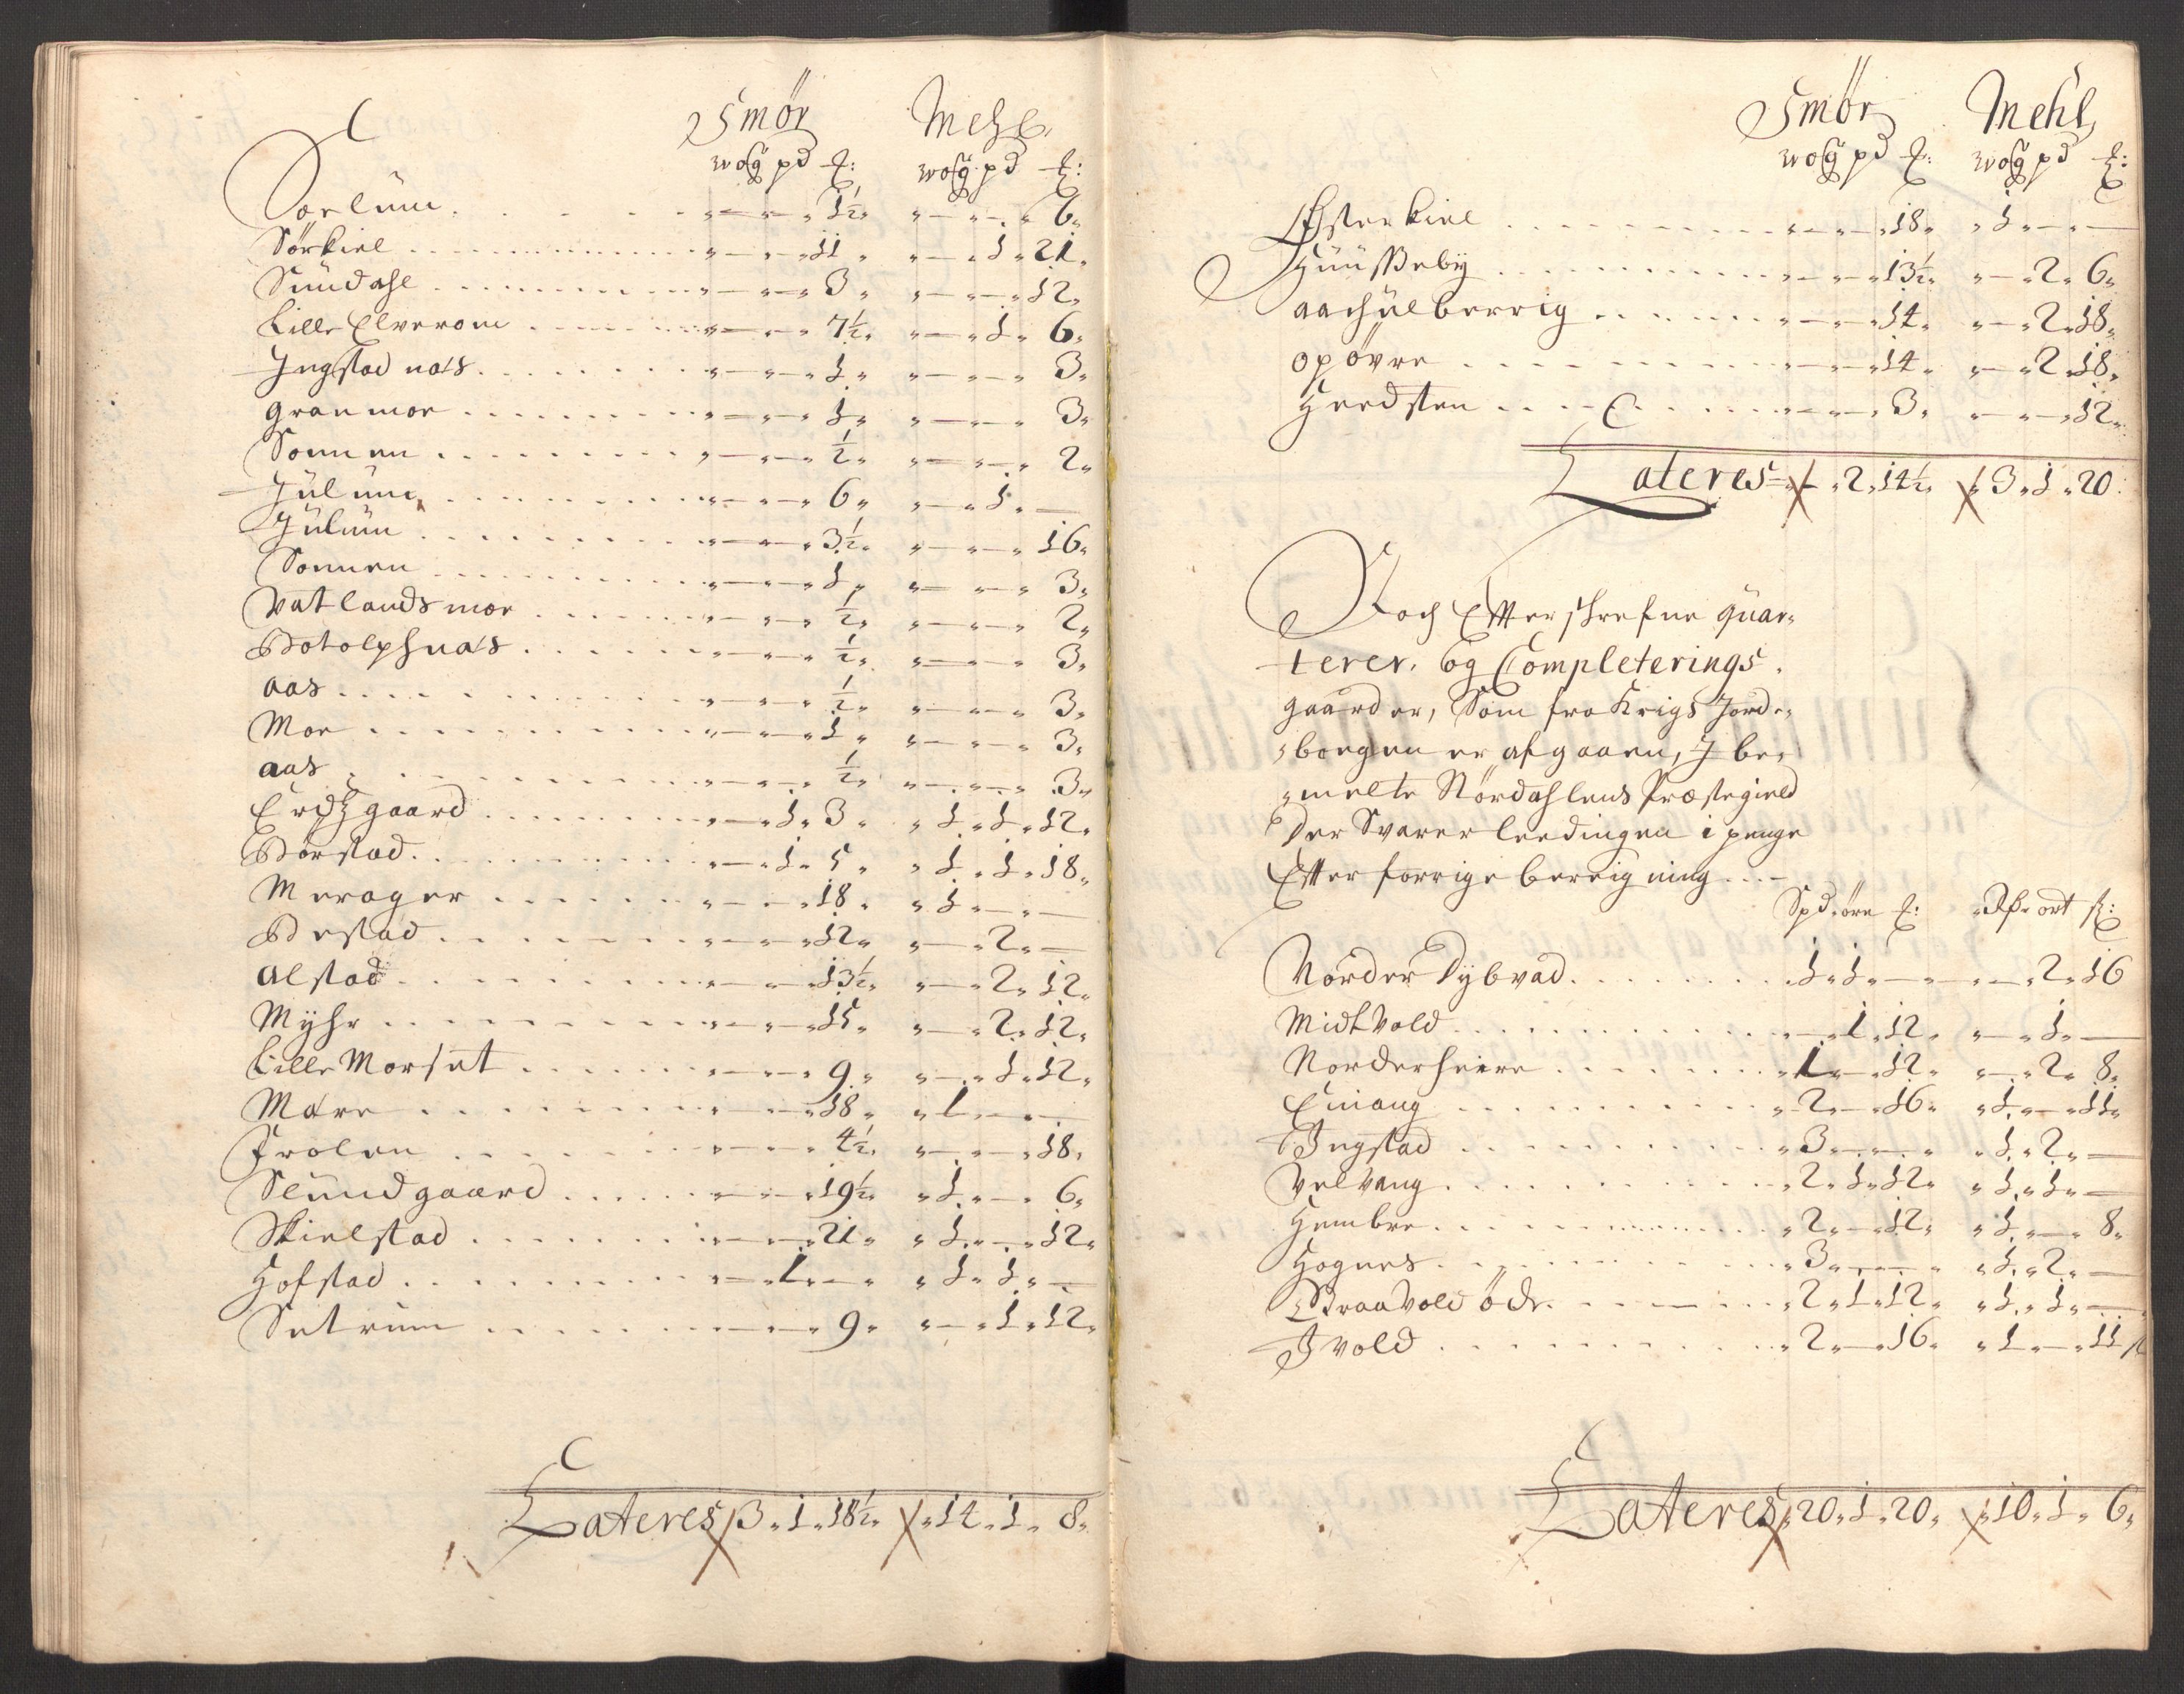 Smör Mehl
wog pd ℔: wog pd ℔:
Sørlum . . . „ — „ — „ 1½ „ „ — „ — „ 6 „
Sørkiel . . . „ — „ — „ 11 „ „ — „ 1 „ 21 „
Sundahl . . . „ — „ — „ 3 „ „ — „ — „ 12 „
Lille Elverom . . . „ — „ — „ 7½ „ „ — „ 1 „ 6 „
Ingstad næs . . . „ — „ — „ 1 „ „ — „ — „ 3 „
Granmoe . . . „ — „ — „ 1 „ „ — „ — „ 3 „
Sonnen . . . „ — „ — „ ½ „ „ — „ — „ 2 „
Julum . . . „ — „ — „ 6 „ „ — „ 1 „ —
Julum . . . „ — „ — „ 3½ „ „ — „ — „ 16 „
Sonnen . . . „ — „ — „ 1 „ „ — „ — „ 3 „
Vatlandsmoe . . . „ — „ — „ ½ „ „ — „ — „ 2 „
Botolphnæs . . . „ — „ — „ ½ „ „ — „ — „ 3 „
Aas . . . „ — „ — „ ½ „ „ — „ — „ 3 „
Moe . . . „ — „ — „ 1 „ „ — „ — „ 3 „
Aas . . . „ — „ — „ ½ „ „ — „ — „ 3 „
gaard . . . „ — „ 1 „ 3 „ „ 1 „ 1 „ 12 „
Børstad . . . „ — „ 1 „ 5 „ „ 1 „ 1 „ 18 „
Merager . . . „ — „ — „ 18 „ „ 1 „ — „ —
Bestad . . . „ — „ — „ 12 „ „ — „ 2 „ —
Alstad . . . „ — „ — „ 13½ „ „ — „ 2 „ 12 „
Myhr . . . „ — „ — „ 15 „ „ — „ 2 „ 12 „
Lille Morset . . . „ — „ — „ 9 „ „ — „ 1 „ 12 „
Mære . . . „ — „ — „ 18 „ „ 1 „ — „ —
Frolen . . . „ — „ — „ 4½ „ „ — „ — „ 18 „
Slundgaard . . . „ — „ — „ 19½ „ „ 1 „ — „ 6 „
Skielstad . . . „ — „ — „ 21 „ „ 1 „ — „ 12 „
Hofstad . . . „ — „ 1 „ — „ „ 1 „ 1 „ —
Setrum . . . „ — „ — „ 9 „ „ — „ 1 „ 12 „
Lateres 3 „ 1 „ 18½ „ „ 14 „ 1 „ 8 „
Smör Mehl
wog pd ℔: wog pd ℔:
Østerkiel . . . „ — „ — „ 18 „ „ 1 „ — „ —
Huusseby . . . „ — „ — „ 13½ „ „ — „ 2 „ 6 „
. . . „ — „ — „ 14 „ „ — „ 2 „ 18 „
opøvre . . . „ — „ — „ 14 „ „ — „ 2 „ 18 „
Herdsten . . . „ — „ — „ 3 „ „ — „ — „ 12 „
Lateres „ — „ 2 „ 14½ „ „ 3 „ 1 „ 20
Noch Efterskrefne quar-
terer, og Completerings
gaarder, Som fra Krigs Jorde-
bogen er afgaaen, J be-
melte Størdahlens Præstegield
Der Svarer leedingen i penge
Efter forrige berrigning . . .
Spd. øre ℔: Rd ort ß:
Nørder Dybvad . . . 1 „ 1 „ — „ „ — „ 2 „ 16
Midtvold . . . „ — „ 1 „ 12 „ „ — „ 1 „ —
Norderheire . . . „ 1 „ — „ 12 „ „ — „ 2 „ 8 „
Einang . . . „ 2 „ — „ 16 „ „ 1 „ — „ 11 „
Ingstad . . . „ 3 „ — „ — „ „ 1 „ 2 „ —
Velvang . . . „ 2 „ 1 „ 12 „ „ 1 „ 1 „ —
Hembre . . . „ 2 „ — „ 12 „ „ 1 „ — „ 8 „
Hognes . . . „ 3 „ — „ — „ „ 1 „ 2 „ —
Straavold øde . . . „ 2 „ 1 „ 12 „ „ 1 „ 1 „ —
Jvold . . . „ 2 „ — „ 16 „ „ 1 „ — „ 11
Lateres „ 20 „ 1 „ 20 „ „ 10 „ 1 „ 6 „